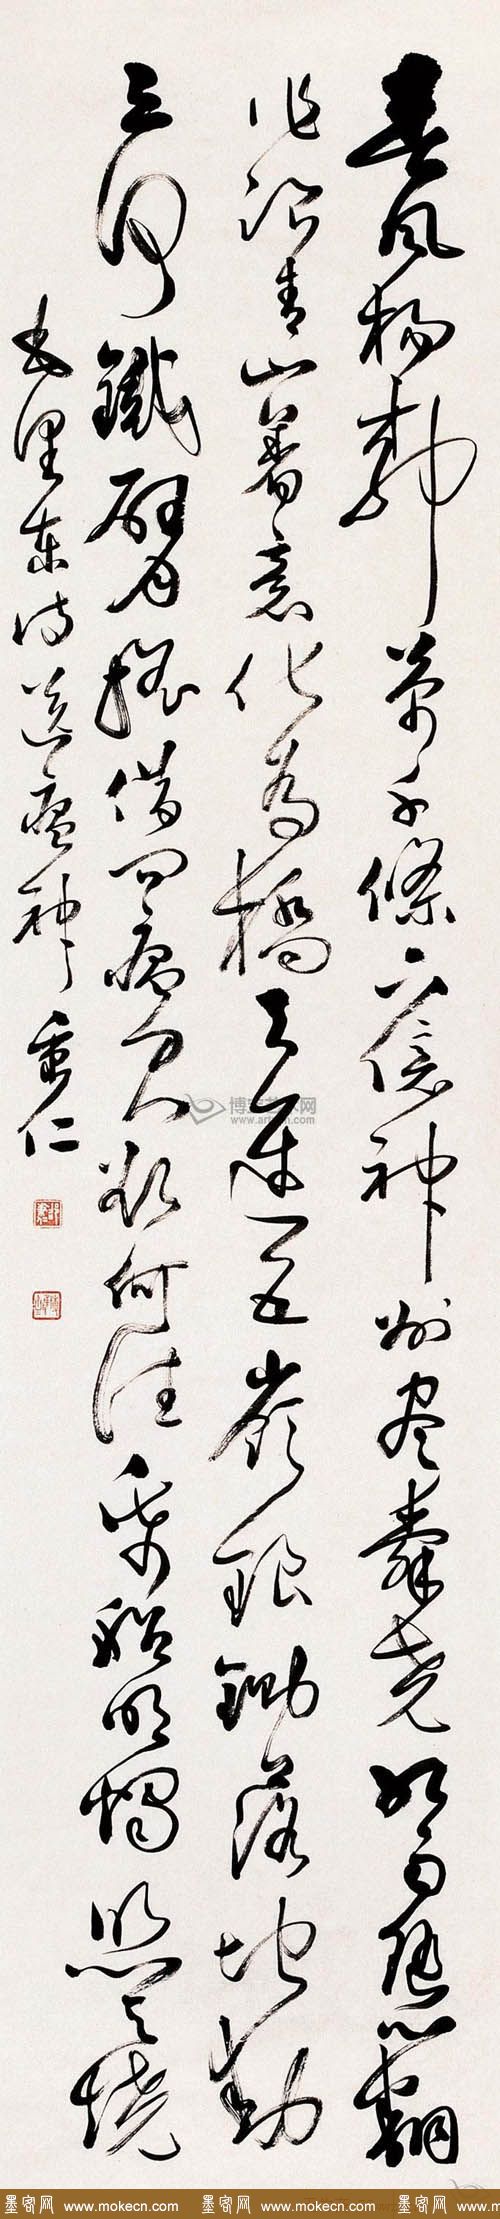 春風楊柳萬千條六億神州尽舜堯紅雨随心翻
作浪青山著意化为橋天連五嶺銀鋤落地動
三河鐵臂摇借问瘟君欲何往纸船明燭照天燒
毛澤東诗送瘟神 重仁
墨客网 www.mokecn.com 墨客网 www.mokecn.com 墨客网 www.mokecn.com